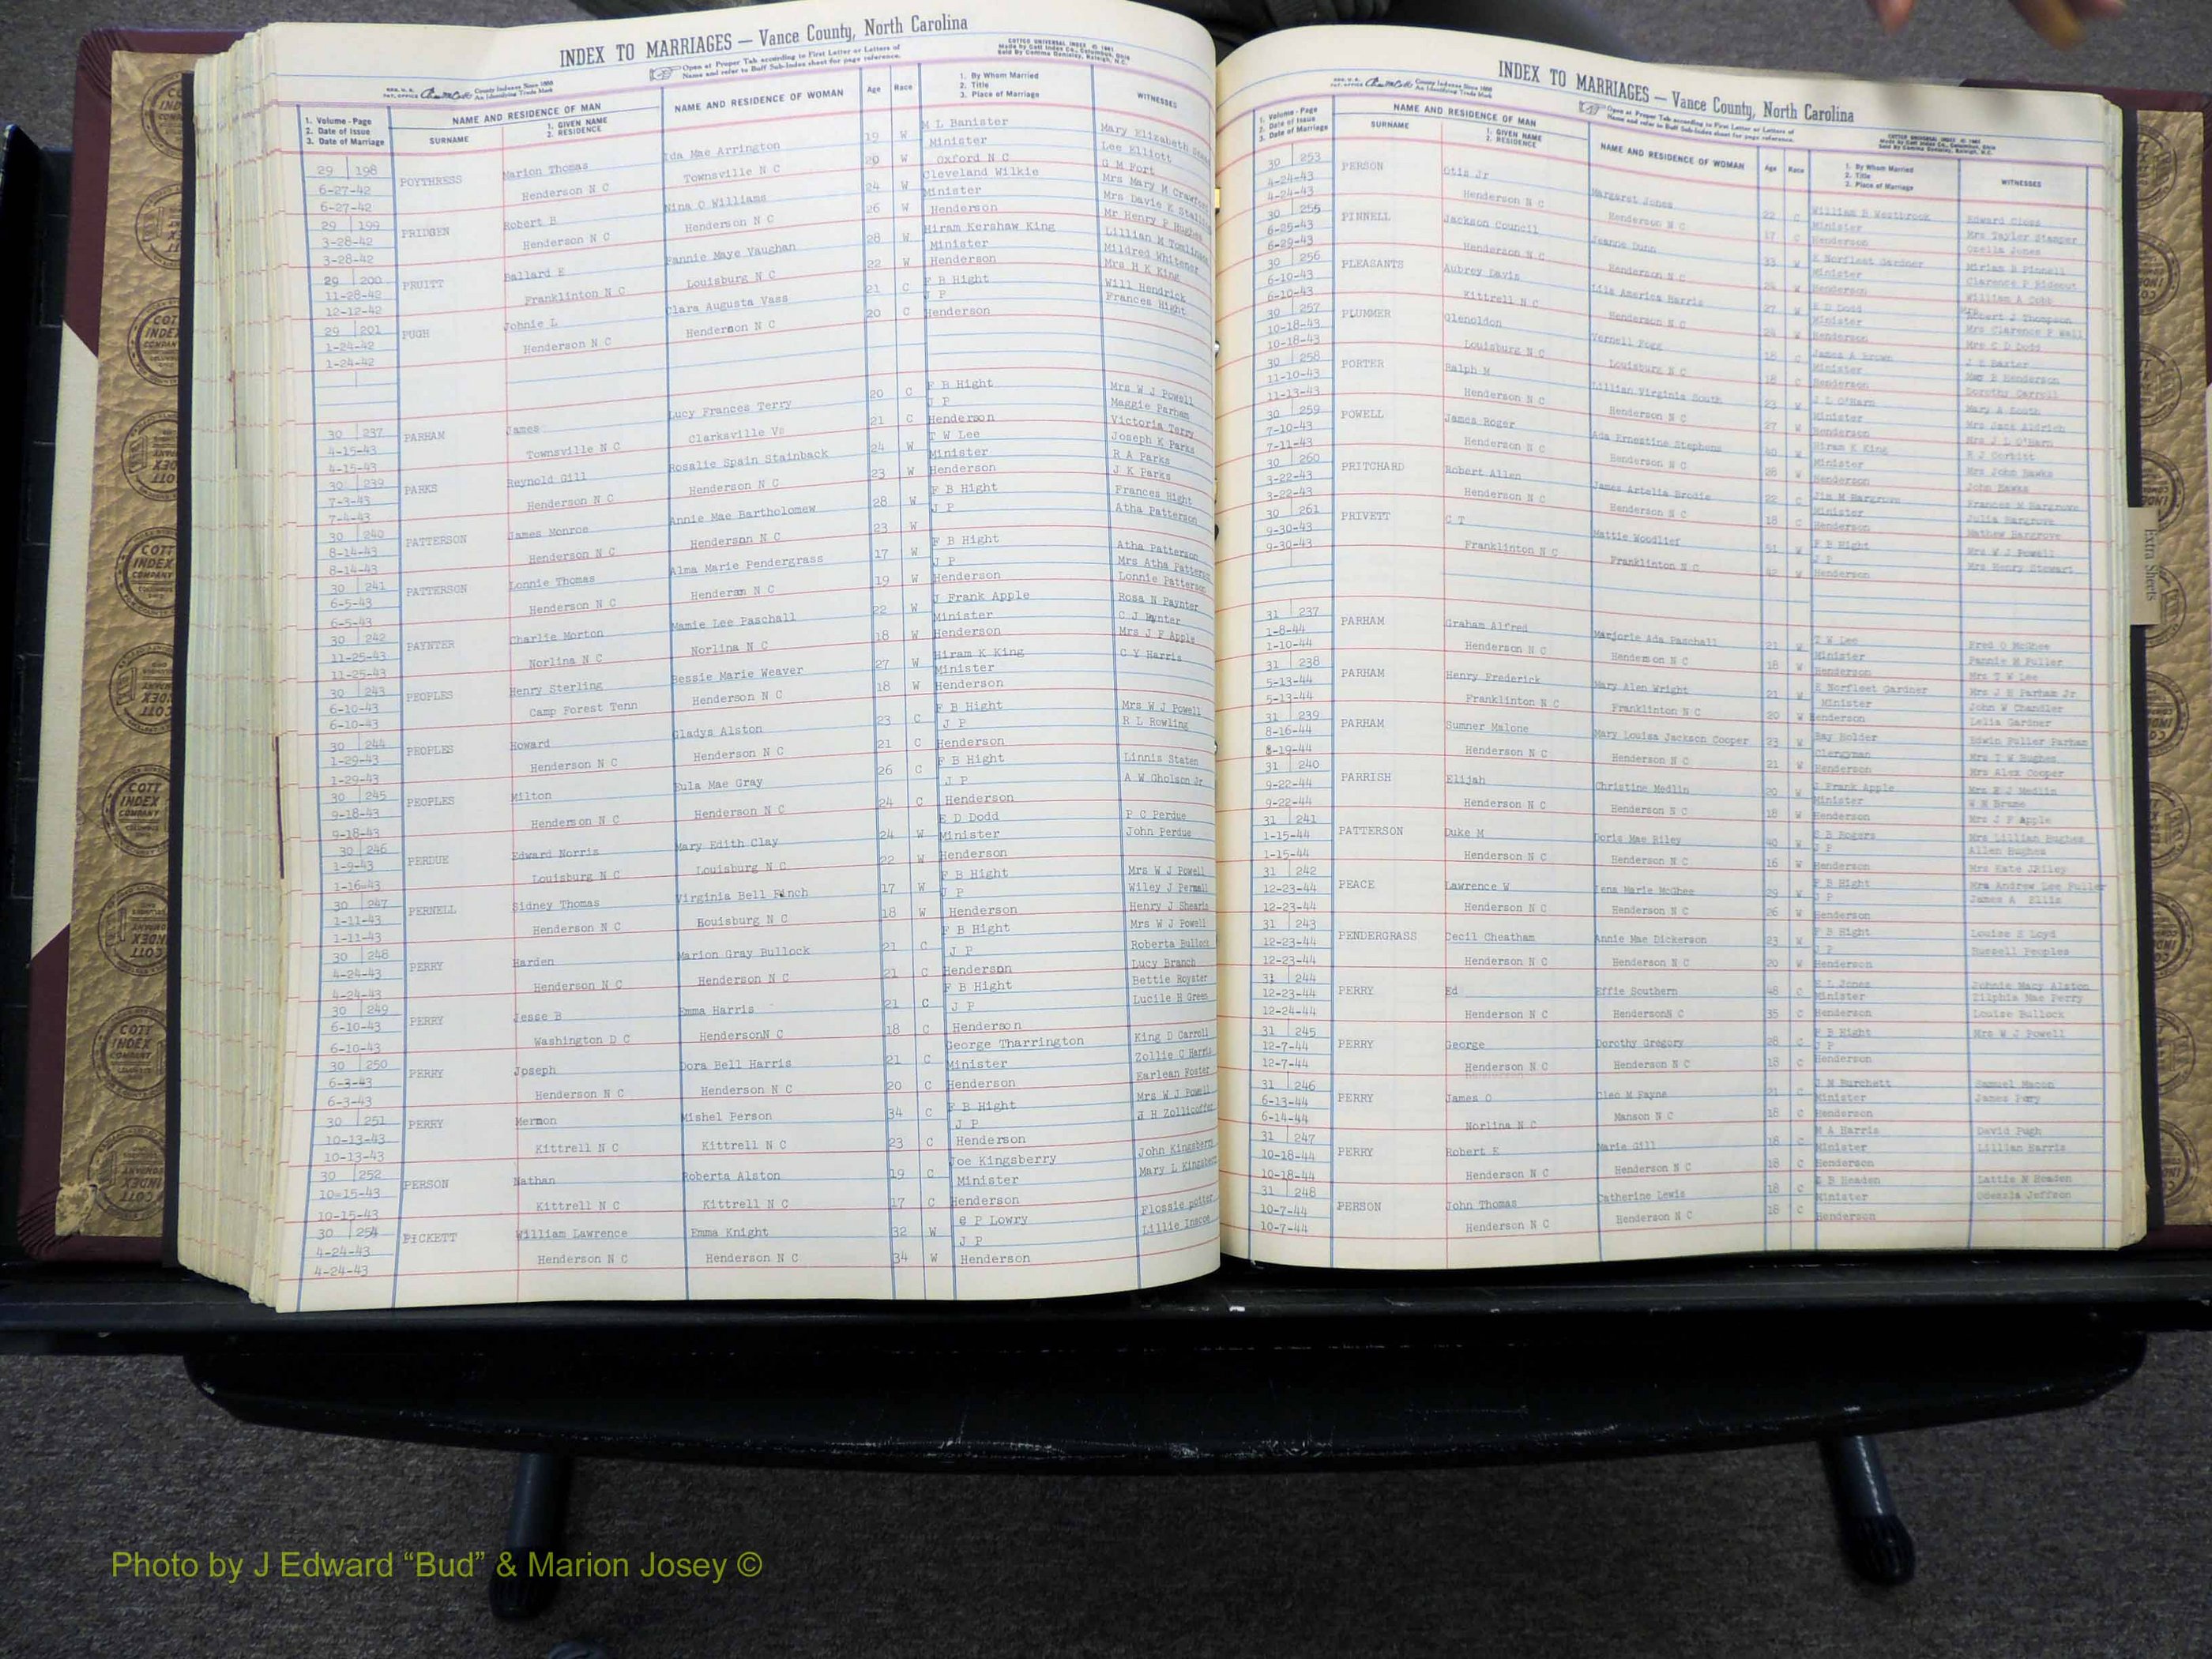 INDEX TO MARRIAGES — Vance County, North Carolina
Open at Proper Tab according to First Letter or Letters of
Name and refer to Buff Sub-Index sheet for page reference.
COTTCO UNIVERSAL INDEX © 1961
Made by Cott Index Co., Columbus, Ohio
County Indexes Since 1888
An Identifying Trade Mark
1. Volume - Page
2. Date of Issue
3. Date of Marriage
NAME AND RESIDENCE OF MAN
SURNAME
1. GIVEN NAME
2. RESIDENCE
NAME AND RESIDENCE OF WOMAN
Age Race
1. By Whom Married
2. Title
3. Place of Marriage
WITNESSES
29 198 POYTHRESS Marion Thomas Ida Mae Arrington 19 W M L Banister Mary Elizabeth
6-27-42 Henderson N C Townsville N C 20 W Minister Lee Elliott
6-27-42 Oxford N C G M Fort
29 199 PRIDGEN Robert B Nina O Williams 24 W Cleveland Wilkie Mrs Mary M Crawford
3-28-42 Henderson N C Henderson N C 26 W Minister Mrs Davie E
3-28-42 Henderson Mr Henry P Hughes
29 200 PRUITT Ballard E Fannie Maye Vaughan 28 W Hiram Kershaw King Lillian M Tomlinson
11-28-42 Franklinton N C Louisburg N C 22 W Minister Mildred Whitener
12-12-42 Henderson Mrs H K King
29 201 PUGH Johnie L Clara Augusta Vass 21 C F B Hight Will Hendrick
1-24-42 Henderson N C Henderson N C 20 C J P Frances Hight
1-24-42 Henderson
30 237 PARHAM James Lucy Frances Terry 20 C F B Hight Mrs W J Powell
4-15-43 Townsville N C Clarksville Va 21 C J P Maggie Parham
4-15-43 Henderson Victoria Terry
30 239 PARKS Reynold Gill Rosalie Spain Stainback 24 W T W Lee Joseph K Parks
7-3-43 Henderson N C Henderson N C 23 W Minister R A Parks
7-4-43 Henderson J K Parks
30 240 PATTERSON James Monroe Annie Mae Bartholomew 28 W F B Hight Frances Hight
8-14-43 Henderson N C Henderson N C 23 W J P Atha Patterson
8-14-43
30 241 PATTERSON Lonnie Thomas Alma Marie Pendergrass 17 W F B Hight Atha Patterson
6-5-43 Henderson N C Henderson N C 19 W J P Mrs Atha Patterson
6-5-43 Henderson Lonnie Patterson
30 242 PAYNTER Charlie Morton Mamie Lee Paschall 22 W J Frank Apple Rosa N Paynter
11-25-43 Norlina N C Norlina N C 18 W Minister C J Paynter
11-25-43 Henderson Mrs J F Apple
30 243 PEOPLES Henry Sterling Bessie Marie Weaver 27 W Hiram K King C Y Harris
6-10-43 Camp Forest Tenn Henderson N C 18 W Minister
6-10-43 Henderson
30 244 PEOPLES Howard Gladys Alston 23 C F B Hight Mrs W J Powell
1-29-43 Henderson N C Henderson N C 21 C J P R L Rowling
1-29-43 Henderson
30 245 PEOPLES Milton Eula Mae Gray 26 C F B Hight Linnis Staten
9-18-43 Henderson N C Henderson N C 24 C J P A W Gholson Jr
9-18-43 Henderson
30 246 PERDUE Edward Norris Mary Edith Clay 24 W E D Dodd P C Perdue
1-9-43 Louisburg N C Louisburg N C 22 W Minister John Perdue
1-16-43 Henderson
30 247 PERNELL Sidney Thomas Virginia Bell Finch 17 W F B Hight Mrs W J Powell
1-11-43 Henderson N C Bouisburg N C 18 W J P Wiley J Pernell
1-11-43 Henderson Henry J Shearin
30 248 PERRY Harden Marion Gray Bullock 21 C F B Hight Mrs W J Powell
4-24-43 Henderson N C Henderson N C 21 C J P Roberta Bullock
4-24-43 Henderson Lucy Branch
30 249 PERRY Jesse B Emma Harris 21 C F B Hight Bettie Royster
6-10-43 Washington D C HendersonN C 18 C J P Lucile H Green
6-10-43 Henderson
30 250 PERRY Joseph Dora Bell Harris 21 C George Tharrington King D Carroll
6-3-43 Henderson N C Henderson N C 20 C Minister Zollie C Harris
6-3-43 Henderson Earlean Foster
30 251 PERRY Mermon Mishel Person 34 C F B Hight Mrs W J Powell
10-13-43 Kittrell N C Kittrell N C 23 C J P J H Zollicoffer
10-13-43 Henderson
30 252 PERSON Nathan Roberta Alston 19 C Joe Kingsberry John Kingsberry
10-15-43 Kittrell N C Kittrell N C 17 C Minister Mary L Kingsberry
10-15-43 Henderson
30 254 PICKETT William Lawrence Emma Knight 32 W e P Lowry Flossie poiter
4-24-43 Henderson N C Henderson N C 34 W J P Lillie Inscoe
4-24-43 Henderson
INDEX TO MARRIAGES — Vance County, North Carolina
Open at Proper Tab according to First Letter or Letters of
Name and refer to Buff Sub-Index sheet for page reference.
1. Volume - Page
2. Date of Issue
3. Date of Marriage
NAME AND RESIDENCE OF MAN
SURNAME
1. GIVEN NAME
2. RESIDENCE
NAME AND RESIDENCE OF WOMAN
Age Race
1. By Whom Married
2. Title
3. Place of Marriage
WITNESSES
30 253 PERSON Otis Jr Margaret Jones 22 C William B Westbrook Edward Closs
4-24-43 Henderson N C Henderson N C 17 C Minister Mrs Taylor Stamper
4-24-43 Henderson Ozella Jones
30 255 PINNELL Jackson Council Jeanne Dunn 33 W E Norfleet Gardner Miriam B Pinnell
6-25-43 Henderson N C Henderson N C W Minister Clarence P Rideout
6-29-43 Henderson William A Cobb
30 256 PLEASANTS Aubrey Davis Lila America Harris 27 W E D Dodd Robert J Thompson
6-10-43 Kittrell N C Henderson N C 24 W Minister Mrs Clarence P Wall
6-10-43 Henderson Mrs C D Dodd
30 257 PLUMMER Glenoldon Vernell Fogg 18 C James A Brown J E Baxter
10-18-43 Louisburg N C Louisburg N C 18 C Minister May P Henderson
10-18-43 Henderson Dorothy Carroll
30 258 PORTER Ralph M Lillian Virginia South 23 W J L O'Harn Mary A South
11-10-43 Henderson N C Henderson N C 27 W Minister Mrs Jack Aldrich
11-13-43 Henderson Mrs J L O'Harn
30 259 POWELL James Roger Ada Ernestine Stephens 40 W Hiram K King R J Corbitt
7-10-43 Henderson N C Henderson N C 28 W Minister Mrs John Hawks
7-11-43 Henderson John Hawks
30 260 PRITCHARD Robert Allen James Artelia Brodie 22 C Jim M Hargrove Frances M Hargrove
3-22-43 Henderson N C Henderson N C 18 C Minister Julia Hargrove
3-22-43 Henderson Mathew Hargrove
30 261 PRIVETT C T Mattie Woodlief 51 W F B Hight Mrs W J Powell
9-30-43 Franklinton N C Franklinton N C 42 W J P Mrs Henry Stewart
9-30-43 Henderson
31 237 PARHAM Graham Alfred Marjorie Ada Paschall 21 W T W Lee Fred O McGhee
1-8-44 Henderson N C Henderson N C 18 W Minister Fannie H Fuller
1-10-44 Henderson Mrs T W Lee
31 238 PARHAM Henry Frederick Mary Alen Wright 21 W E Norfleet Gardner Mrs J H Parham Jr
5-13-44 Franklinton N C Franklinton N C 20 W Minister John W Chandler
5-13-44 Henderson Lelia Gardner
31 239 PARHAM Sumner Malone Mary Louisa Jackson Cooper 23 W Ray Holder Edwin Fuller Parham
8-16-44 Henderson N C Henderson N C 21 W Clergyman Mrs T W Hughes
8-19-44 Henderson Mrs Alex Cooper
31 240 PARRISH Elijah Christine Medlin 20 W J Frank Apple Mrs E J Medlin
9-22-44 Henderson N C Henderson N C 18 W Minister W H Brume
9-22-44 Henderson Mrs J F Apple
31 241 PATTERSON Duke M Doris Mae Riley 40 W E B Rogers Mrs Lillian Hughes
1-15-44 Henderson N C Henderson N C 16 W J P Allen Hughes
1-15-44 Henderson Mrs Kate JRiley
31 242 PEACE Lawrence W Lena Marie McGhee 29 W F B Hight Mrs Andrew Lee Fuller
12-23-44 Henderson N C Henderson N C 26 W J P James A Ellis
12-23-44 Henderson
31 243 PENDERGRASS Cecil Cheatham Annie Mae Dickerson 23 W F B Hight Louise E Loyd
12-23-44 Henderson N C Henderson N C 20 W J P Russell Peoples
12-23-44 Henderson
31 244 PERRY Ed Effie Southern 48 C E L Jones Johnie Macy Alston
12-23-44 Henderson N C HendersonN C 35 C Minister Zilphia Mae Perry
12-24-44 Henderson Louise Bullock
31 245 PERRY George Dorothy Gregory 28 C F B Hight Mrs W J Powell
12-7-44 Henderson N C Henderson N C 18 C J P
12-7-44 Henderson
31 246 PERRY James O Cleo M Payne 21 C J M Burchett Samuel Macon
6-13-44 Norlina N C Manson N C 18 C Minister James Pery
6-14-44 Henderson
31 247 PERRY Robert E Marie Gill 18 C M A Harris David Pugh
10-18-44 Henderson N C Henderson N C 18 C Minister Lillian Harris
10-18-44 Henderson
31 248 PERSON John Thomas Catherine Lewis 18 C E B Headen Lattie N Headen
10-7-44 Henderson N C Henderson N C 18 C Minister Odessia Jeffeon
10-7-44 Henderson
Extra Sheets
COTT INDEX COMPANY
Photo by J Edward “Bud” & Marion Josey ©